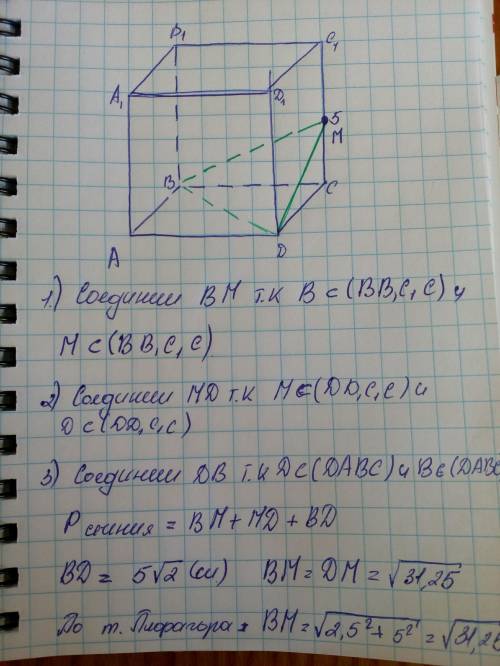 B₁
C₁
A₁
D₁
5
M
B
C
A
D
1.) Соединим BM т.к B ⊂ (BB₁C₁C) и
M ⊂ (BB₁C₁C)
2) Соединим MD т.к M ⊂ (DD₁C₁C) и
D ⊂ (DD₁C₁C)
3) Соединим DB т.к D ⊂ (DABC) и B ∈ (DABC
P сечения = BM + MD + BD
BD = 5√2 (см) BM = DM = √31,25
По т. Пифагора: BM = √2,5² + 5² = √31,25